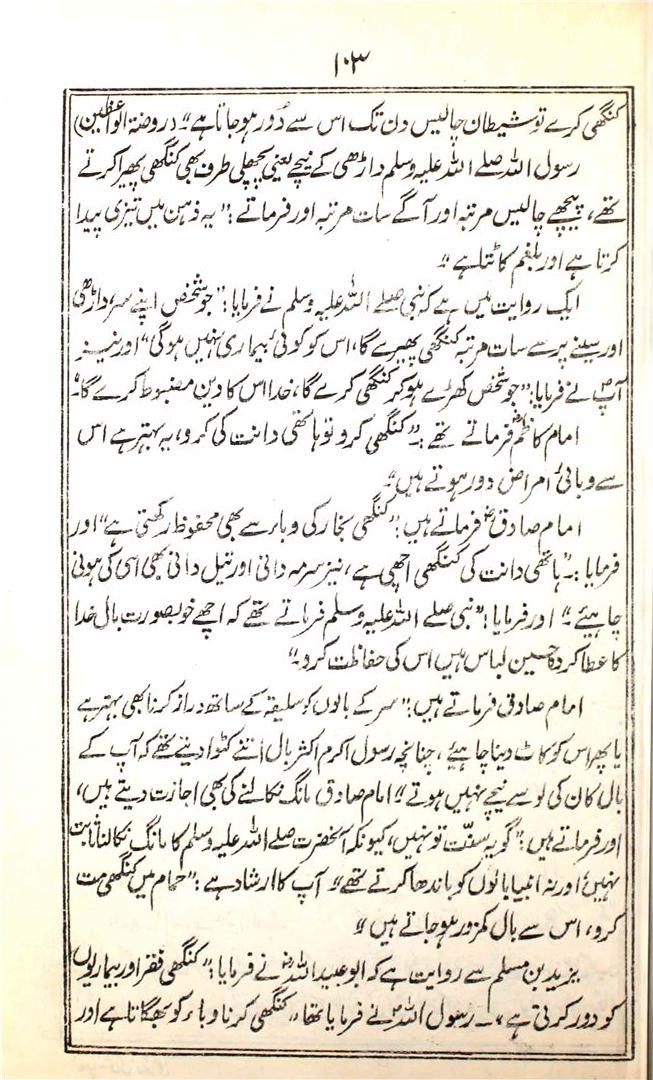 ۱۰۳
کنگھی کرے تو شیطان چالیس دن تک اس سے دُور ہو جاتا ہے ۔" (روضۃ الواعظین)
رسول اللہ صلے اللہ علیہ وسلم داڑھی کے نیچے یعنی پچھلی طرف بھی کنگھی پھیرا کرتے
تھے، پیچھے چالیس مرتبہ اور آگے سات مرتبہ اور فرماتے : "یہ ذہن میں تیزی پیدا
کرتا ہے اور بلغم کاٹتا ہے ۔"
ایک روایت میں ہے کہ نبی صلے اللہ علیہ وسلم نے فرمایا : "جو شخص اپنے سر، داڑھی
اور سینے پر سے سات مرتبہ کنگھی پھیرے گا، اس کو کوئی بیماری نہیں ہوگی" اور نیز
آپؐ نے فرمایا : "جو شخص کھڑے ہو کر کنگھی کرے گا، خدا اس کا دین مضبوط کرے گا۔"
امام کاظمؑ فرماتے تھے :۔ "کنگھی کرو تو ہاتھی دانت کی کرو، یہ بہتر ہے اس
سے وبائی امراض دور ہوتے ہیں"
امام صادقؑ فرماتے ہیں : "کنگھی بخار کی وباء سے بھی محفوظ رکھتی ہے" اور
فرمایا :۔ "ہاتھی دانت کی کنگھی اچھی ہے، نیز سرمہ دانی اور تیل دانی بھی اسی کی ہونی
چاہیئے ۔" اور فرمایا : "نبی صلے اللہ علیہ وسلم فرماتے تھے کہ اچھے خوبصورت بال خدا
کا عطا کردہ حسین لباس ہیں اس کی حفاظت کرو ۔"
امام صادق فرماتے ہیں : "سر کے بالوں کو سلیقہ کے ساتھ دراز کرنا بھی بہتر ہے
یا پھر اس کو کاٹ دینا چاہیئے، چنانچہ رسول اکرم اکثر بال اتنے کٹوا دیتے تھے کہ آپ کے
بال کان کی لو سے نیچے نہیں ہوتے" امام صادق مانگ نکالنے کی بھی اجازت دیتے ہیں،
اور فرماتے ہیں : "گو یہ سنّت تو نہیں، کیونکہ آنحضرت صلے اللہ علیہ وسلم کا مانگ نکالنا ثابت
نہیں اور نہ انبیا بالوں کو باندھا کرتے تھے" آپ کا ارشاد ہے : "حمام میں کنگھی مت
کرو، اس سے بال کمزور ہو جاتے ہیں"
یزید بن مسلم سے روایت ہے کہ ابو عبید اللہؑ نے فرمایا : "کنگھی فقر اور بیماریوں
کو دور کرتی ہے، ۔ رسول اللہؐ نے فرمایا تھا "کنگھی کرنا وباء کو بھگاتا ہے اور